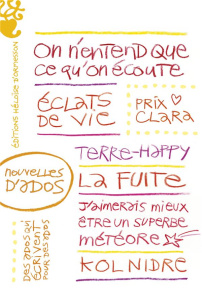 ÉDITIONS HÉLOÏSE D'ORMESSON
ON N'ENTEND QUE
CE QU'ON ÉCOUTE
ÉCLATS
DE VIE
PRIX
CLARA
TERRE-HAPPY
NOUVELLES
D'ADOS
LA FUITE
J'AIMERAIS MIEUX
ÊTRE UN SUPERBE
MÉTÉORE
DES ADOS QUI
ÉCRIVENT
POUR DES ADOS
KOL NIDRE